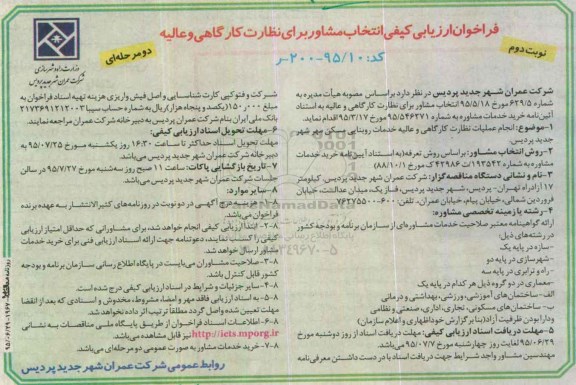 فراخوان ارزیابی کیفی انتخاب مشاور برای نظارت کارگاهی و عالیه
نوبت دوم
دو مرحله‌ای
کد: ۹۵/۱۰-۲۰۰-ر
وزارت راه و شهرسازی
شرکت عمران شهر جدید پردیس
شرکت عمران شهر جدید پردیس در نظر دارد براساس مصوبه هیأت مدیره به
شماره ۶۲۹/۵ مورخ ۹۵/۵/۱۸ انتخاب مشاور برای نظارت کارگاهی و عالیه به استناد
آئین‌نامه خرید خدمات مشاوره به شماره ۹۵/۵۴۶۲۷۱ مورخ ۹۵/۳/۱۷ اقدام نماید.
۱-موضوع: انجام عملیات نظارت کارگاهی و عالیه خدمات روبنایی مسکن مهر شهر
جدید پردیس.
۲-روش انتخاب مشاور: براساس روش تعرفه (به استناد آیین‌نامه خرید خدمات
مشاوره به شماره ۱۹۳۵۴۲/ت ۴۲۹۸۶ک مورخ ۸۸/۱۰/۱)
۳-نام و نشانی دستگاه مناقصه‌گزار: شرکت عمران شهر جدید پردیس. کیلومتر
۱۷ آزادراه تهران- پردیس، شهر جدید پردیس، فاز یک، میدان عدالت، خیابان
فروردین شمالی، خیابان پیام، خیابان عمران، تلفن: ۶۰۰-۷۶۲۷۵۵۰۰
۴-رشته یا زمینه تخصصی مشاوره:
ارائه گواهینامه معتبر صلاحیت خدمات مشاوره‌ای از سازمان برنامه و بودجه کشور
در رشته‌های ذیل:
-سازه در پایه یک
-شهرسازی در پایه دو
-راه و ترابری در پایه سه
-معماری در دو گروه ذیل هر کدام در پایه یک
الف- ساختمان‌های آموزشی، ورزشی، بهداشتی و درمانی
ب- ساختمان‌های مسکونی، تجاری، اداری، صنعتی و نظامی
ودارا بودن ظرفیت آزاد (بنا بر گزارش خوداظهاری و اعلام سازمان)
۵-مهلت دریافت اسناد ارزیابی کیفی: مهلت دریافت اسناد از روز دوشنبه مورخ
۹۵/۰۶/۲۹ لغایت روز چهارشنبه مورخ ۹۵/۰۷/۷ می‌باشد.
مهندسین مشاور واجد شرایط جهت دریافت اسناد با در دست داشتن معرفی‌نامه
شرکت و فتوکپی کارت شناسایی و اصل فیش واریزی هزینه تهیه اسناد فراخوان به
مبلغ ۱۵۰/۰۰۰ (یکصد و پنجاه هزار) ریال به شماره حساب سیبا ۲۱۷۳۶۹۱۲۱۲۰۰۳
بانک ملی ایران بنام شرکت عمران پردیس به دبیرخانه شرکت عمران مراجعه نمایند.
۶-مهلت تحویل اسناد ارزیابی کیفی:
مهلت تحویل اسناد حداکثر تا ساعت ۱۶:۳۰ روز یکشنبه مورخ ۹۵/۰۷/۲۵ به
دبیرخانه شرکت عمران شهر جدید پردیس می‌باشد.
۷-تاریخ بازگشایی پاکات: ساعت ۱۱ صبح روز سه‌شنبه مورخ ۹۵/۷/۲۷ در سالن
جلسات شرکت عمران شهر جدید پردیس می‌باشد.
۸-سایر موارد:
۸-۱- هزینه درج آگهی در دو نوبت در روزنامه‌های کثیرالانتشار به عهده برنده
فراخوان می‌باشد.
۸-۲- ابتدا ارزیابی کیفی انجام خواهد شد، برای مشاورانی که حداقل امتیاز ارزیابی
کیفی را کسب نمایند، دعوتنامه جهت ارائه اسناد ارزیابی فنی برای خرید خدمات
مشاور ارسال خواهد شد.
۸-۳- صلاحیت مشاوران می‌بایست در پایگاه اطلاع رسانی سازمان برنامه و بودجه
کشور قابل کنترل باشد.
۸-۴- سایر جزئیات و شرایط در اسناد ارزیابی کیفی درج شده است.
۸-۵- به اسناد ارزیابی فاقد مهر و امضاء، مشروط، مخدوش و اسنادی که بعد از انقضا
مهلت تعیین شده واصل گردد مطلقاً ترتیب اثر داده نخواهد شد.
۸-۶- اطلاعات اسناد فراخوان از طریق پایگاه ملی مناقصات به نشانی
http://iets.mporg.ir نیز قابل مشاهده می‌باشد.
۸-۷- خرید خدمات مشاور به صورت عمومی دو مرحله‌ای می‌باشد.
روابط عمومی شرکت عمران شهر جدید پردیس